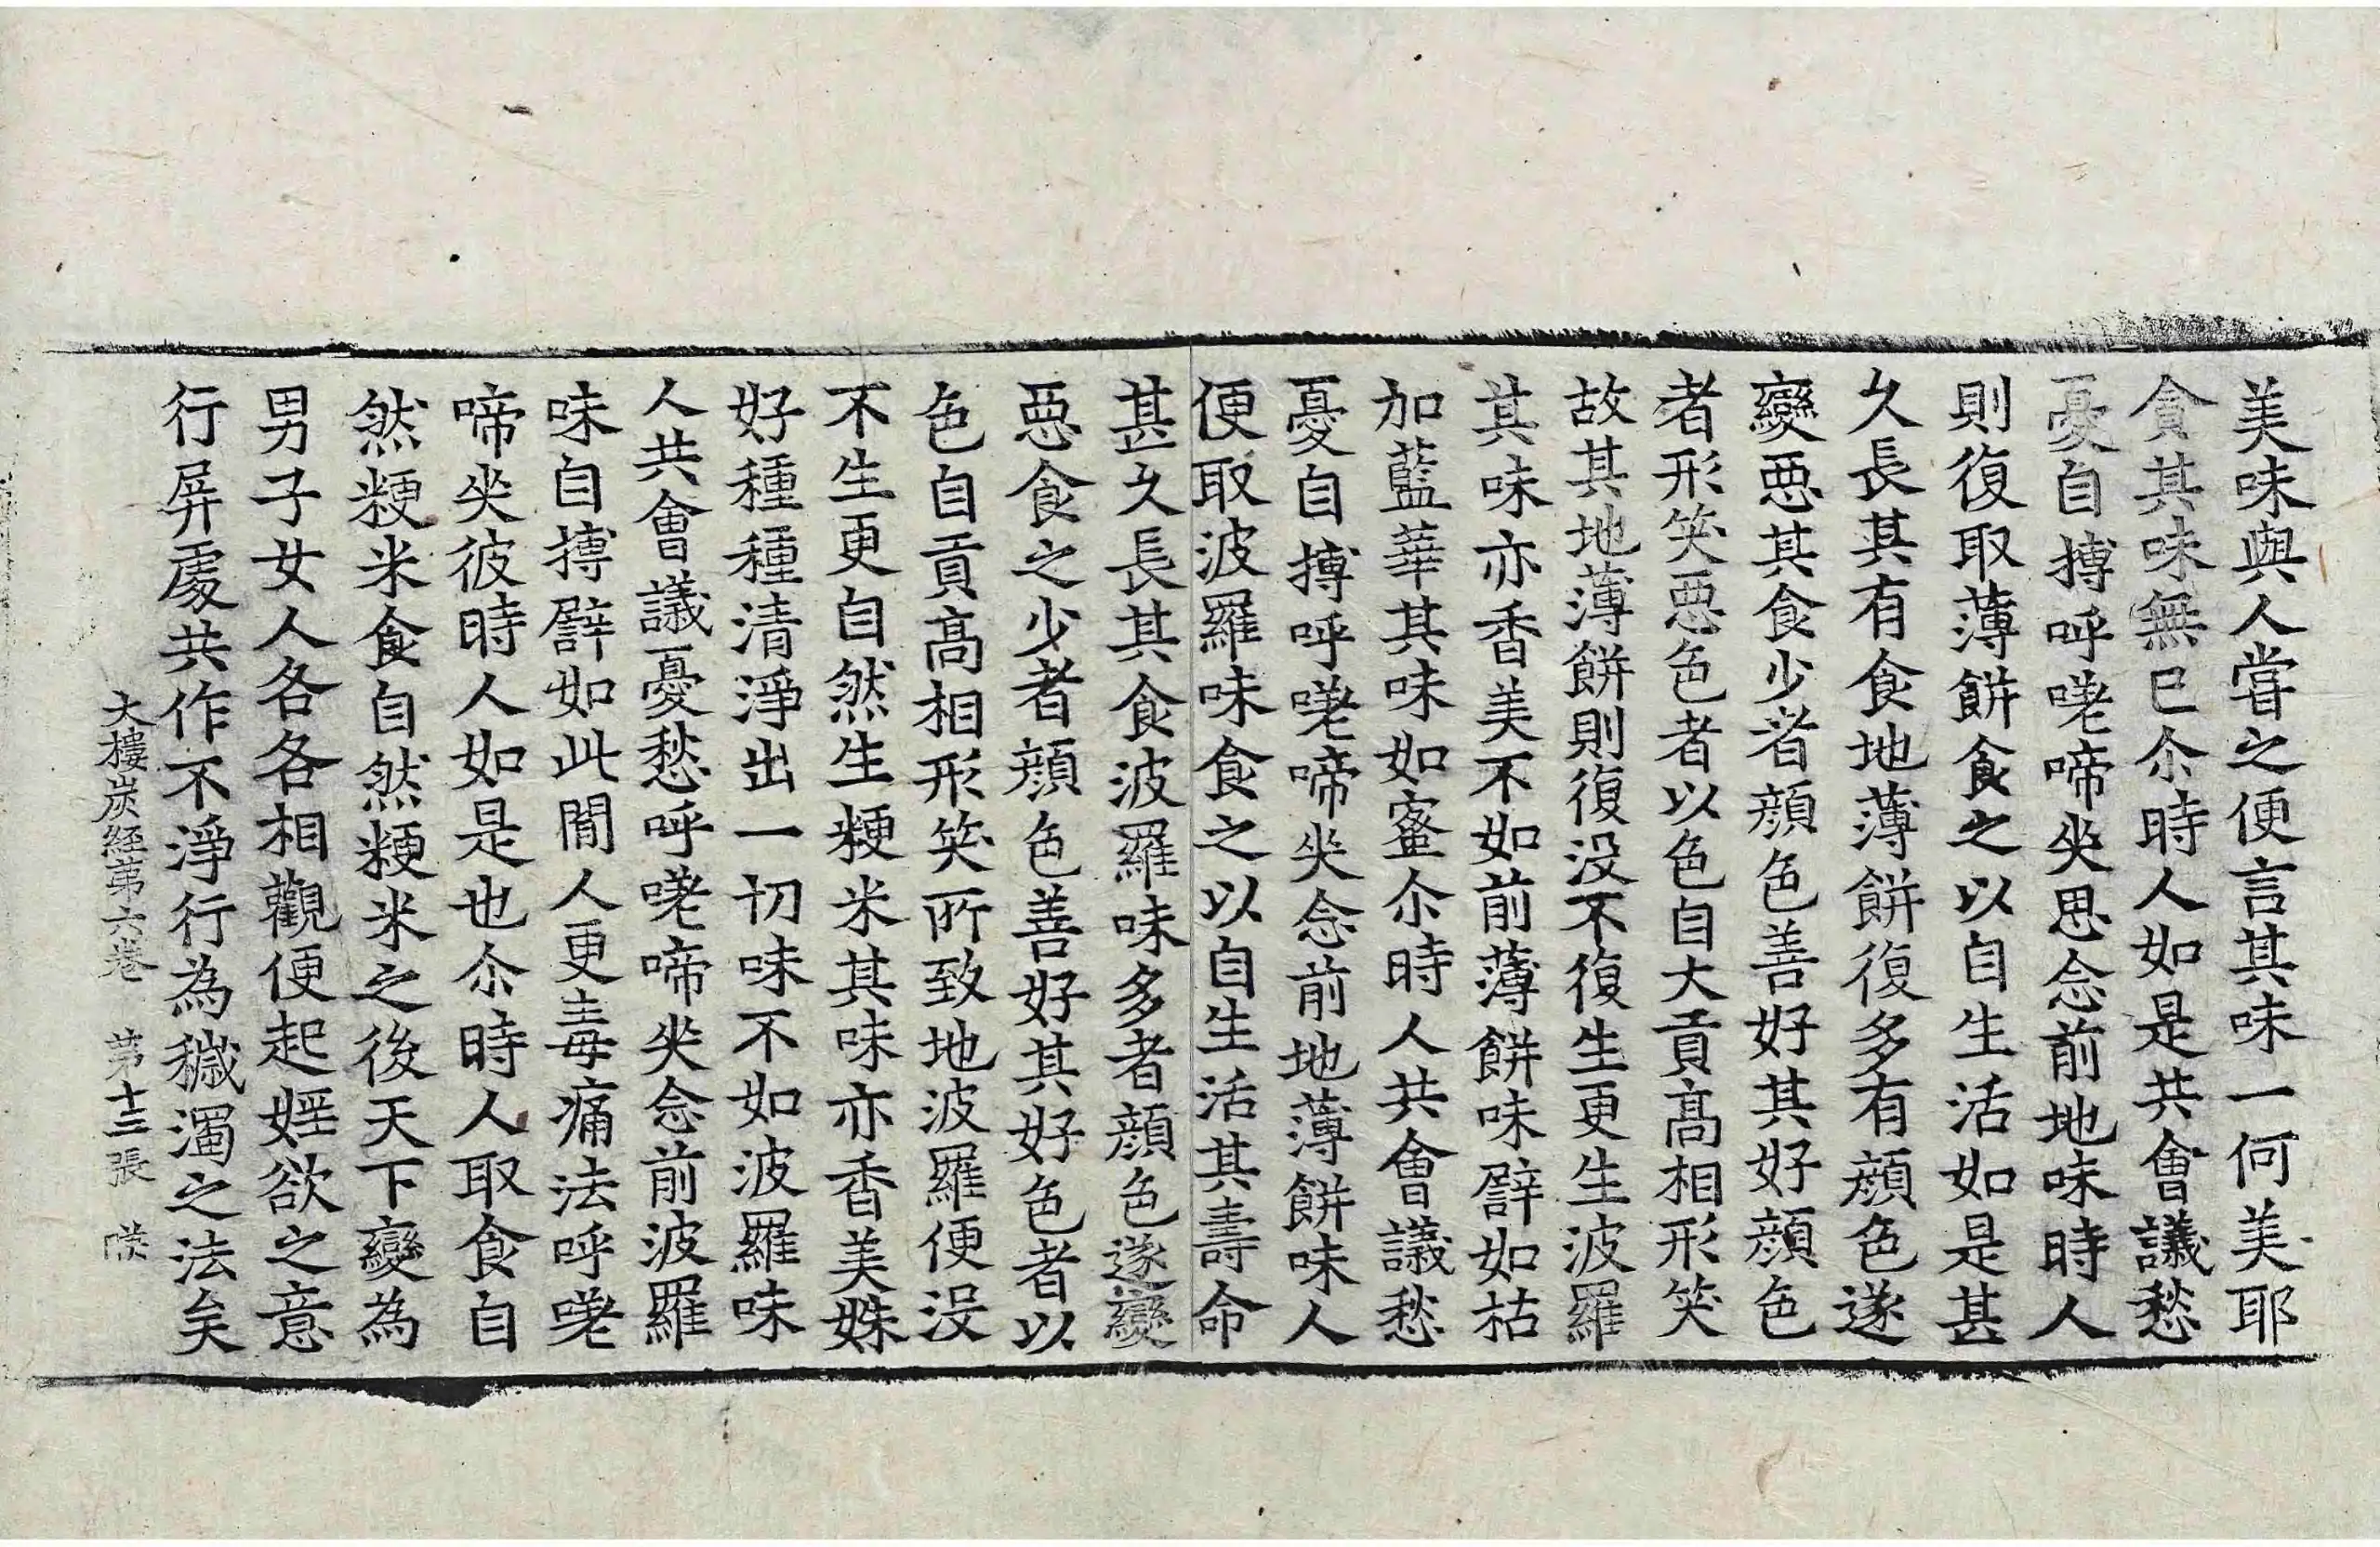 美味與人甞之便言其味一何美耶
貪其味無已尒時人如是共會議愁
憂自搏呼嗟啼㘴思念前地味時人
則復取薄餅食之以自生活如是甚
久長其有食地薄餅復多有顔色遂
變惡其食少者顔色善好其好顔色
者形笑惡色者以色自大貢髙相形笑
故其地薄餅則復没不復生更生波羅
其味亦香美不如前薄餅味譬如枯
加藍華其味如蜜尒時人共會議愁
憂自搏呼嗟啼㘴念前地薄餅味人
便取波羅味食之以自生活其壽命
甚久長其食波羅味多者顔色遂變
惡食之少者顔色善好其好色者以
色自貢髙相形笑所致地波羅便没
不生更自然生粳米其味亦香美姝
好種種清淨出一切味不如波羅味
人共會議憂愁呼嗟啼㘴念前波羅
味自搏譬如此閒人更毒痛法呼嗟
啼㘴彼時人如是也尒時人取食自
然粳米食自然粳米之後天下變為
男子女人各各相觀便起婬欲之意
行屏處共作不淨行為穢濁之法矣
大樓炭経苐六巻 苐十三張